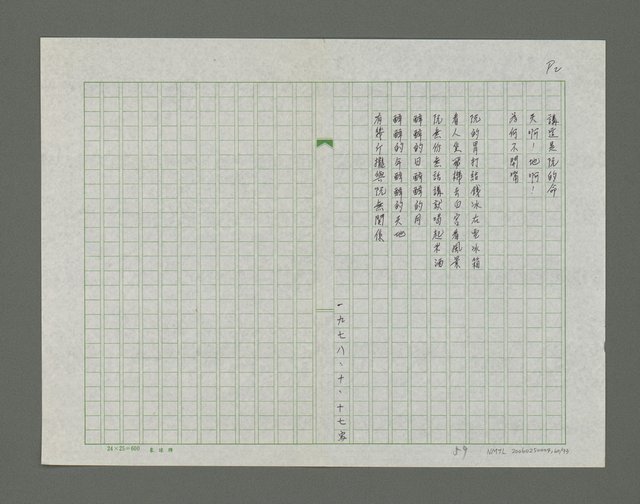 P2
講這是阮的命
天啊！地啊！
為何不開嘴
阮的胃打結錢冰在電冰箱
看人坐飛機去白宮看風景
阮無你無話講就喝起米酒
醉醉的日醉醉的月
醉醉的命醉醉的天地
有幣行攏與阮無關係
一九七八、十、十七
24×25=600
59
NMTL 20060250009